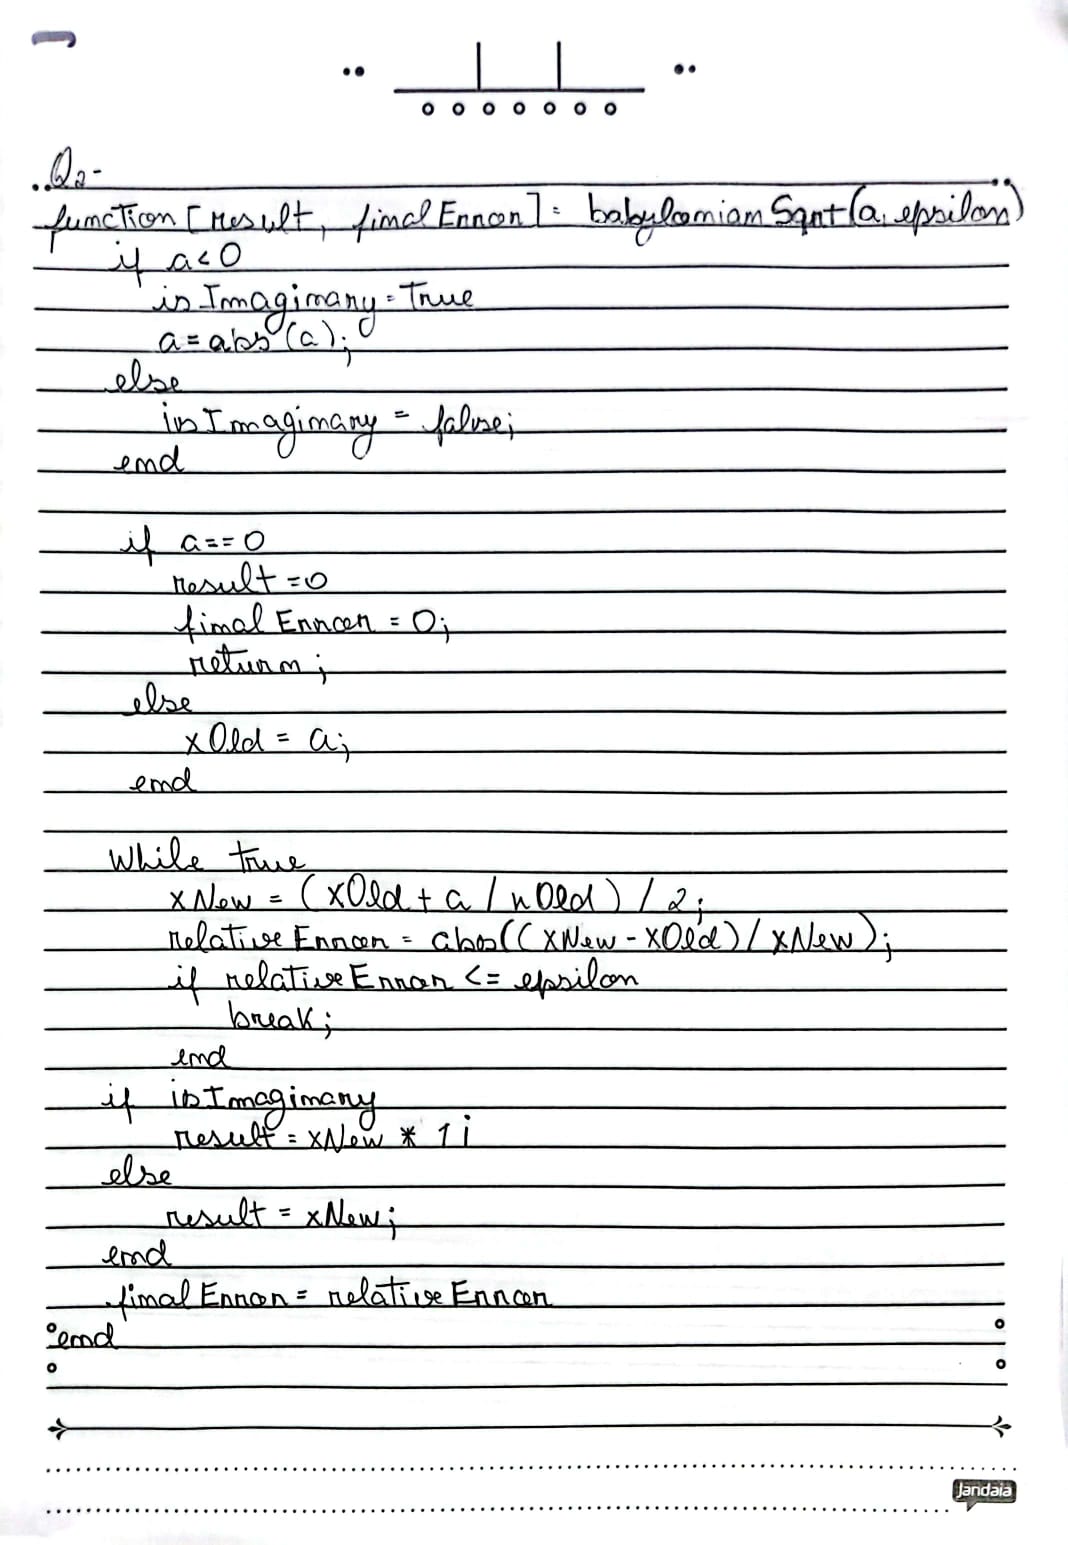 Q2-
function [result, finalError] = babylonianSqrt(a, epsilon)
if a<0
isImaginary = True
a = abs(a);
else
isImaginary = false;
end
if a==0
result =0
finalError = 0;
return;
else
xOld = a;
end
While true
xNew = (xOld + a / xOld) / 2;
relativeError = abs((xNew - xOld) / xNew);
if relativeError <= epsilon
break;
end
if isImaginary
result = xNew * 1i
else
result = xNew;
end
finalError = relativeError
end
Jandaia